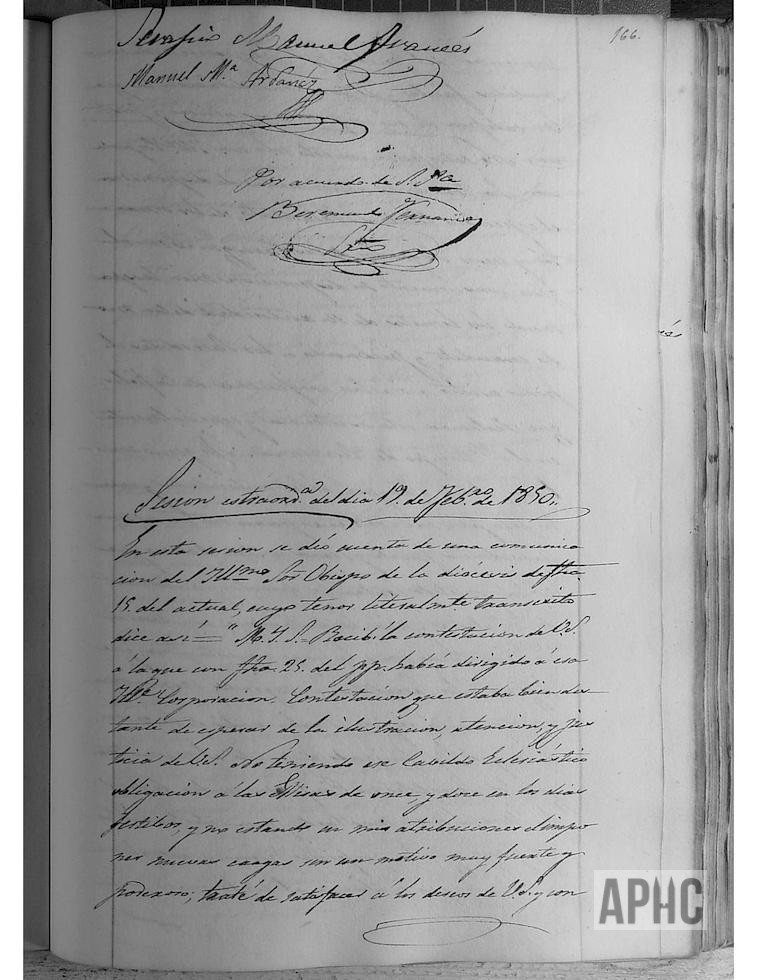 166.
Serafin Manuel Avances
Manuel M.ª Ardanaz
Por acuerdo de S. S.ª
Beremundo
Srio
Sesion estraord.ª del dia 19. de Feb.ro de 1850.
En esta sesion se dió cuenta de una comunica
cion del Ill.mo Sor Obispo de la diócesis de fha
15. del actual, cuyo tenor literalmte transcrito
dice asi = " M. Y. S. = Recibi la contestacion de V.S.
á la que con fha. 25. del pp. habia dirigido á esa
Ill.e Corporacion. Contestacion que estaba bien dis
tante de esperar de la ilustracion, atencion, y jus
ticia de V.S. No teniendo ese Cabildo Eclesiástico
obligacion á las Misas de once, y doce en los dias
festibos, y no estando en mis atribuciones el impo
ner nuevas cargas sin un motivo muy fuerte y
poderoso; traté de satisfacer á los deseos de V.S. y con
APHC